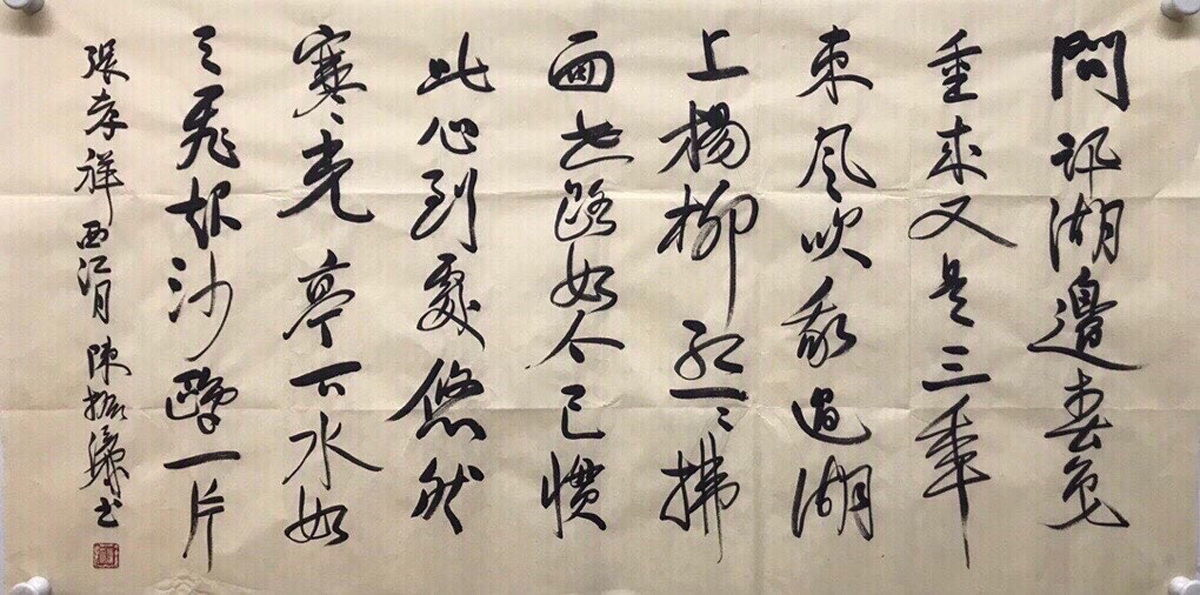 問訊湖邊春色
重来又是三年
東風吹我過湖
上楊柳丝〻拂
面世路如今已惯
此心到處悠然
寒光亭下水如
天飛起沙鷗一片
張孝祥西江月陳振濂书